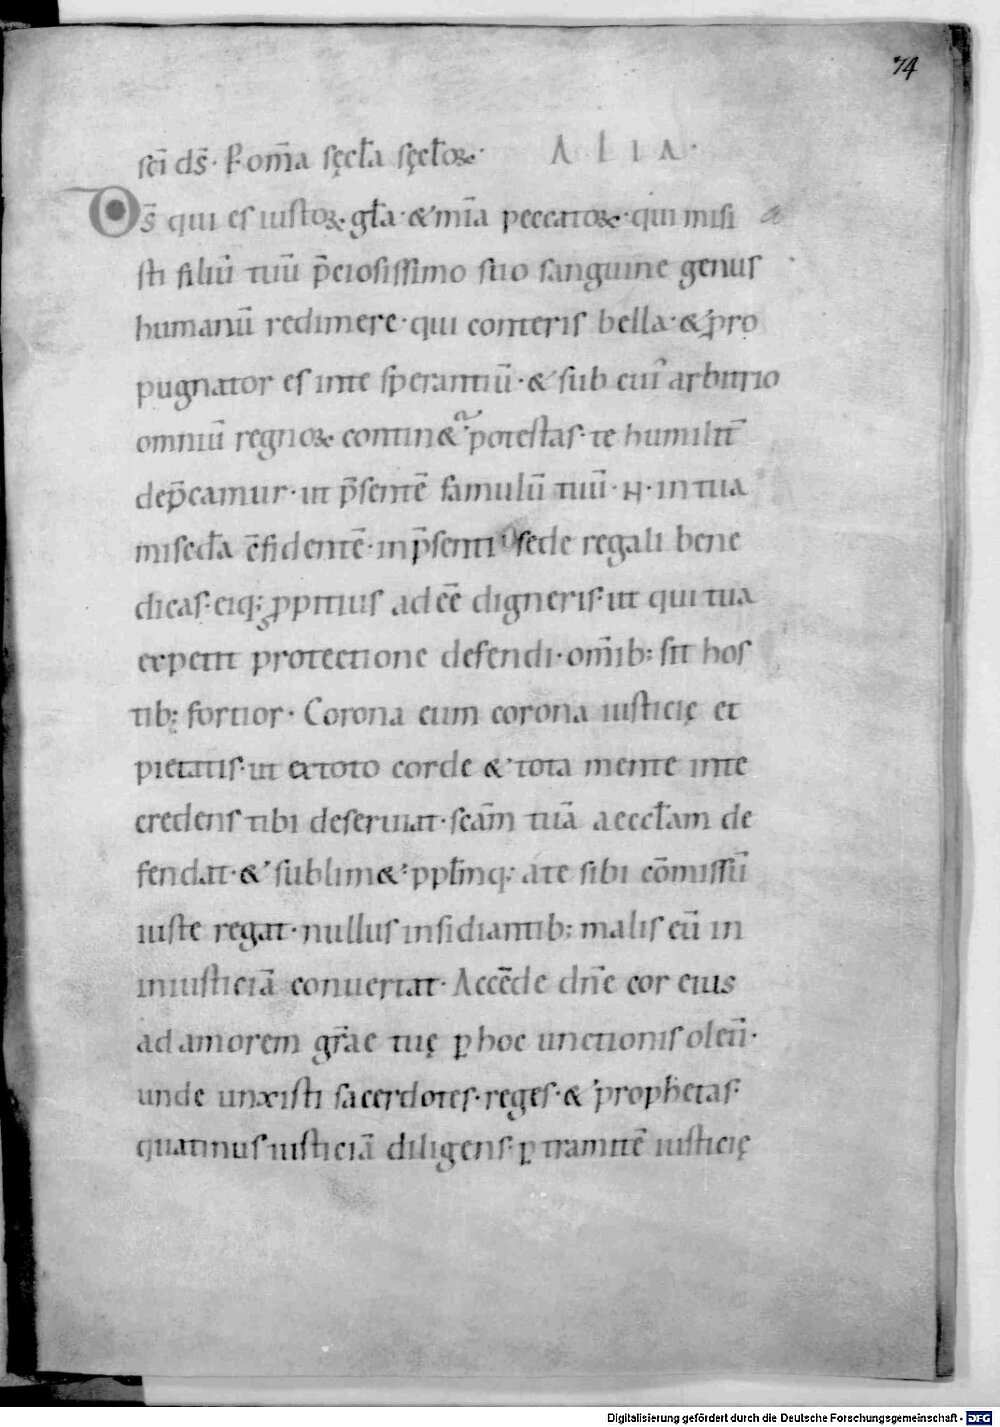 74
sc̄i ds̄· P om̄a sęcl̄a sęcl̄oꝝ· ALIA·
Ds̄ qui es iustoꝝ· gl̄a· & mīa peccatoꝝ· qui misi a
sti filiū tuū p̄ciosissimo suo sanguine genus
humanū redimere· qui conteris bella· & pro
pugnator es in te sperantiū· & sub cui᷒ arbitrio
omniū regnoꝝ contin&ͬ· potestas· te humilit̄
dep̄camur· ut p̄sentē famulū tuū· N· in tua
misc̄da c̄fidentē· in p̄senti sede regali bene
dicas· eiq; ꝓpitius adeē digneris· ut qui tua
expetit protectione defendi· om̄ib; sit hos
tib; fortior· Corona eum corona iusticię et
pietatis· ut ex toto corde & tota mente in te
credens tibi deseruiat· sc̄am tuā aeccl̄am de
fendat· & sublim&· ppl̄mq; a te sibi cōmissū
iuste regat· nullus insidiantib; malis eū in
iniusticiā conuertat· Accēde dn̄e cor eius
ad amorem gr̄ae tuę ꝑ hoc unctionis oleū·
unde unxisti sacerdotes· reges· & prophetas·
quatinus iusticiā diligens· ꝑ tramitē iusticię
Digitalisierung gefördert durch die Deutsche Forschungsgemeinschaft - DFG